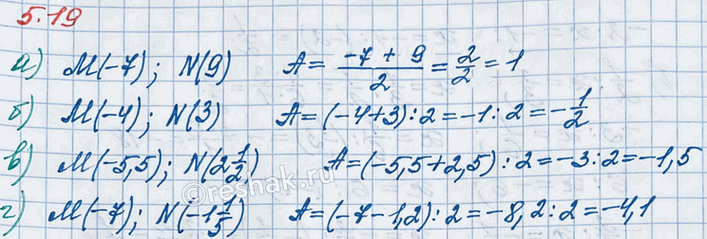 5.19
а) M(-7); N(9) A = \frac{-7 + 9}{2} = \frac{2}{2} = 1
б) M(-4); N(3) A = (-4+3) : 2 = -1 : 2 = -\frac{1}{2}
в) M(-5,5); N(2\frac{1}{2}) A = (-5,5+2,5) : 2 = -3 : 2 = -1,5
г) M(-7); N(-1\frac{1}{5}) A = (-7-1,2) : 2 = -8,2 : 2 = -4,1
©reshak.ru